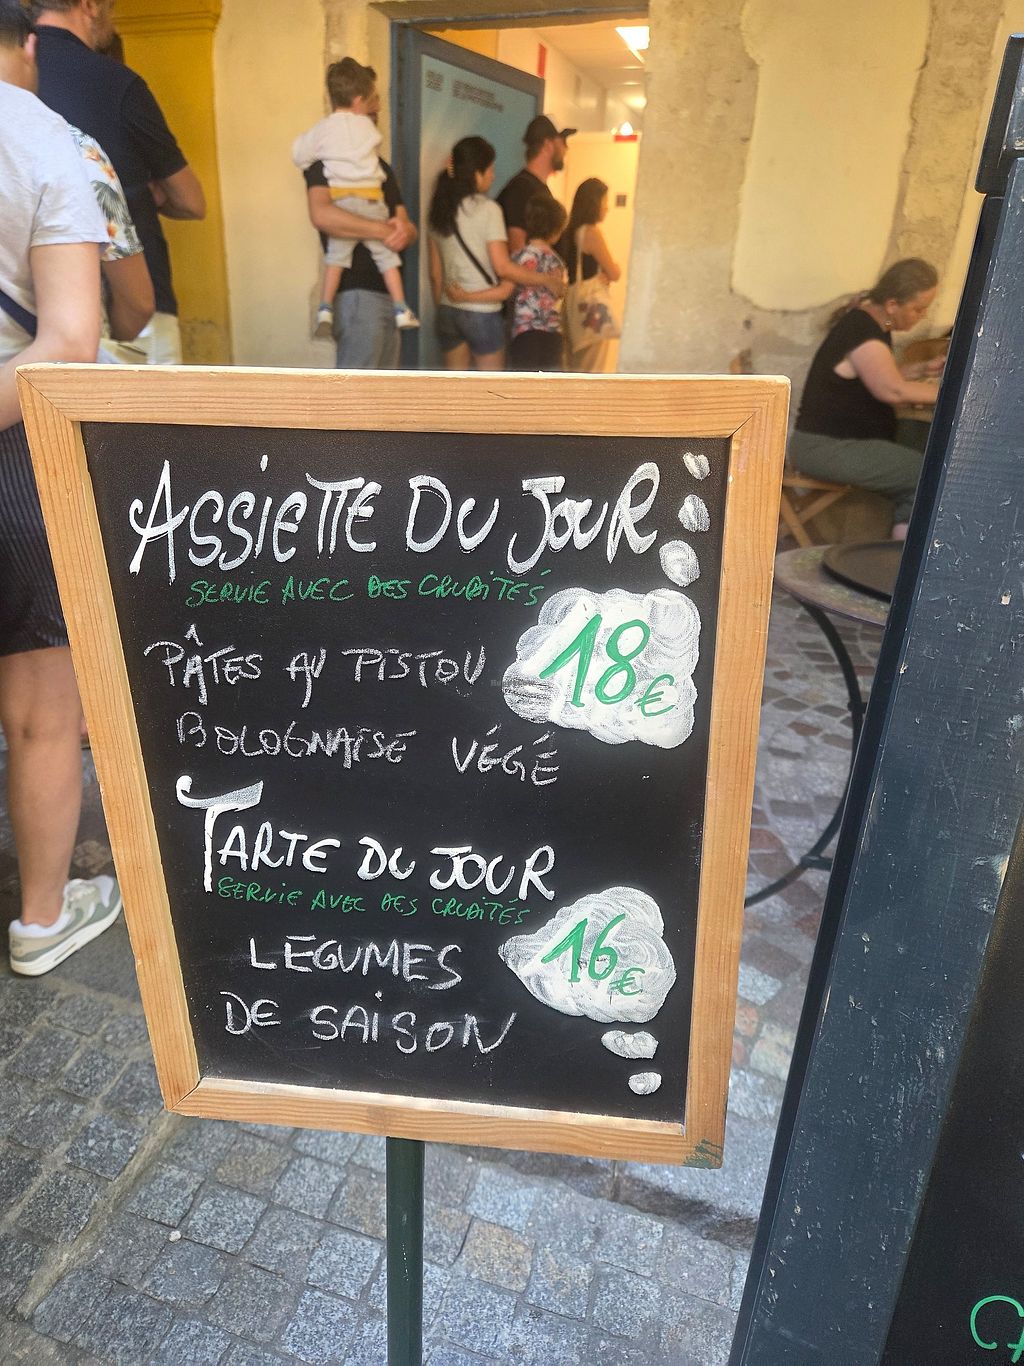 ASSIETTE DU JOUR
SERVIE AVEC DES CRUDITÉS
PÂTES AU PISTOU
18€
BOLOGNAISE VÉGÉ
TARTE DU JOUR
SERVIE AVEC DES CRUDITÉS
LÉGUMES
16€
DE SAISON